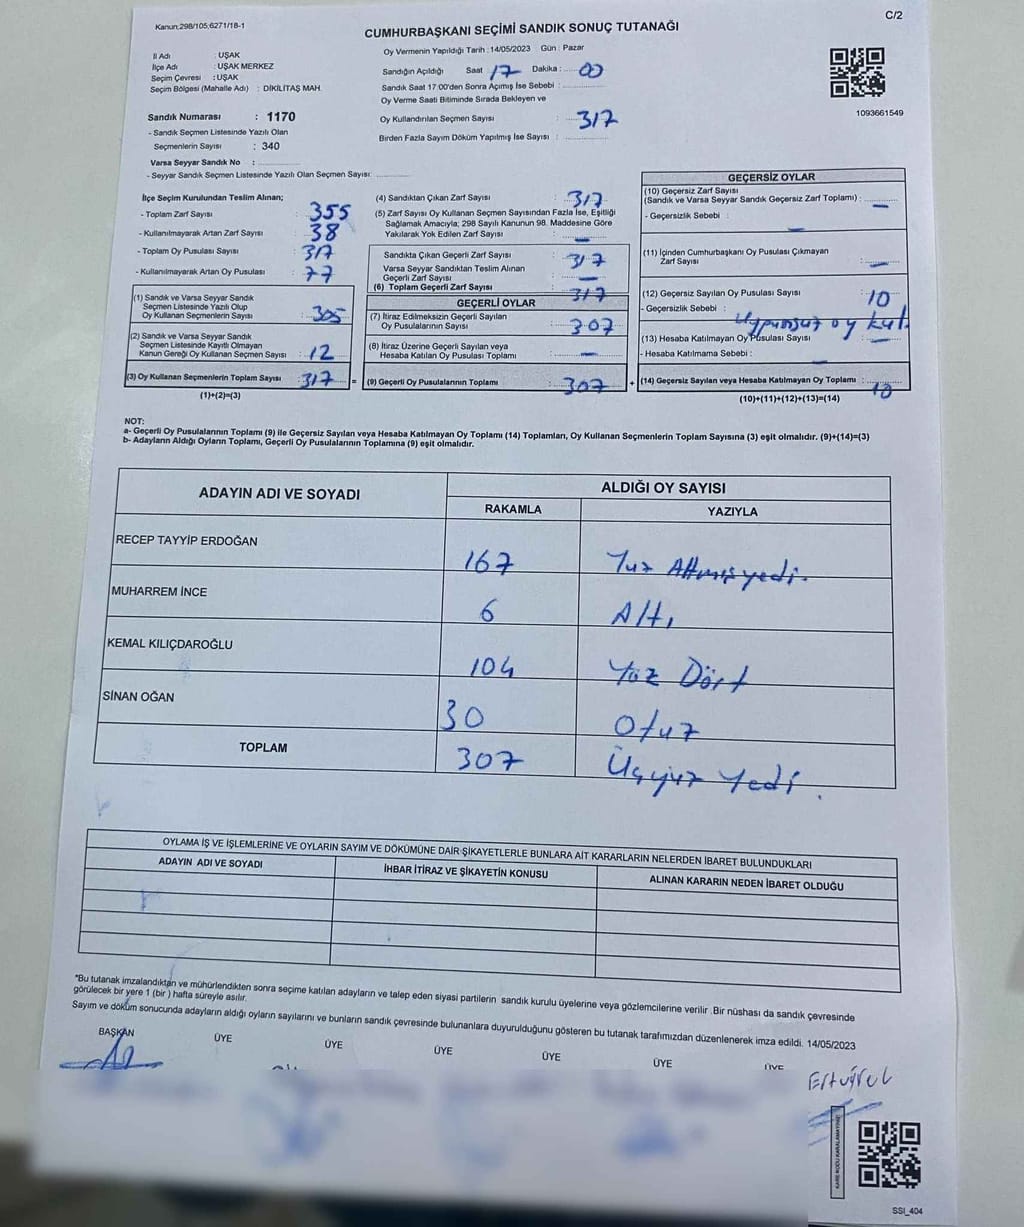 Kanun:298/105;6271/18-1
CUMHURBAŞKANI SEÇİMİ SANDIK SONUÇ TUTANAĞI
C/2
İl Adı : UŞAK
İlçe Adı : UŞAK MERKEZ
Seçim Çevresi : UŞAK
Seçim Bölgesi (Mahalle Adı) : DİKİLİTAŞ MAH.
Sandık Numarası : 1170
- Sandık Seçmen Listesinde Yazılı Olan
Seçmenlerin Sayısı : 340
Varsa Seyyar Sandık No :
- Seyyar Sandık Seçmen Listesinde Yazılı Olan Seçmen Sayısı:
Oy Vermenin Yapıldığı Tarih : 14/05/2023 Gün : Pazar
Sandığın Açıldığı Saat 17 Dakika : 00
Sandık Saat 17:00'den Sonra Açımış İse Sebebi :
Oy Verme Saati Bitiminde Sırada Bekleyen ve
Oy Kullandırılan Seçmen Sayısı : 317
Birden Fazla Sayım Döküm Yapılmış İse Sayısı :
1093661549
İlçe Seçim Kurulundan Teslim Alınan;
- Toplam Zarf Sayısı : 355
- Kullanılmayarak Artan Zarf Sayısı : 38
- Toplam Oy Pusulası Sayısı : 317
- Kullanılmayarak Artan Oy Pusulası : 77
(1) Sandık ve Varsa Seyyar Sandık
Seçmen Listesinde Yazılı Olup
Oy Kullanan Seçmenlerin Sayısı : 305
(2) Sandık ve Varsa Seyyar Sandık
Seçmen Listesinde Kayıtlı Olmayan
Kanun Gereği Oy Kullanan Seçmen Sayısı : 12
(3) Oy Kullanan Seçmenlerin Toplam Sayısı : 317
(1)+(2)=(3)
=
(4) Sandıktan Çıkan Zarf Sayısı : 317
(5) Zarf Sayısı Oy Kullanan Seçmen Sayısından Fazla İse, Eşitliği
Sağlamak Amacıyla; 298 Sayılı Kanunun 98. Maddesine Göre
Yakılarak Yok Edilen Zarf Sayısı : —
Sandıkta Çıkan Geçerli Zarf Sayısı : 317
Varsa Seyyar Sandıktan Teslim Alınan
Geçerli Zarf Sayısı : —
(6) Toplam Geçerli Zarf Sayısı : 317
GEÇERLİ OYLAR
(7) İtiraz Edilmeksizin Geçerli Sayılan
Oy Pusulalarının Sayısı : 307
(8) İtiraz Üzerine Geçerli Sayılan veya
Hesaba Katılan Oy Pusulası Toplamı : —
(9) Geçerli Oy Pusulalarının Toplamı : 307
+
GEÇERSİZ OYLAR
(10) Geçersiz Zarf Sayısı
(Sandık ve Varsa Seyyar Sandık Geçersiz Zarf Toplamı) : —
- Geçersizlik Sebebi : —
(11) İçinden Cumhurbaşkanı Oy Pusulası Çıkmayan
Zarf Sayısı : —
(12) Geçersiz Sayılan Oy Pusulası Sayısı : 10
- Geçersizlik Sebebi : Uygunsuz oy kul.
(13) Hesaba Katılmayan Oy Pusulası Sayısı : —
- Hesaba Katılmama Sebebi : —
(14) Geçersiz Sayılan veya Hesaba Katılmayan Oy Toplamı : 10
(10)+(11)+(12)+(13)=(14)
NOT:
a- Geçerli Oy Pusulalarının Toplamı (9) ile Geçersiz Sayılan veya Hesaba Katılmayan Oy Toplamı (14) Toplamları, Oy Kullanan Seçmenlerin Toplam Sayısına (3) eşit olmalıdır. (9)+(14)=(3)
b- Adayların Aldığı Oyların Toplamı, Geçerli Oy Pusulalarının Toplamına (9) eşit olmalıdır.
ADAYIN ADI VE SOYADI
ALDIĞI OY SAYISI
RAKAMLA YAZIYLA
RECEP TAYYİP ERDOĞAN 167 Yuz Altmış yedi.
MUHARREM İNCE 6 Altı
KEMAL KILIÇDAROĞLU 104 Yüz Dört
SİNAN OĞAN 30 Otuz
TOPLAM 307 Üçyüz Yedi.
OYLAMA İŞ VE İŞLEMLERİNE VE OYLARIN SAYIM VE DÖKÜMÜNE DAİR ŞİKAYETLERLE BUNLARA AİT KARARLARIN NELERDEN İBARET BULUNDUKLARI
ADAYIN ADI VE SOYADI İHBAR İTİRAZ VE ŞİKAYETİN KONUSU ALINAN KARARIN NEDEN İBARET OLDUĞU
*Bu tutanak imzalandıktan ve mühürlendikten sonra seçime katılan adayların ve talep eden siyasi partilerin sandık kurulu üyelerine veya gözlemcilerine verilir .Bir nüshası da sandık çevresinde
görülecek bir yere 1 (bir ) hafta süreyle asılır.
Sayım ve döküm sonucunda adayların aldığı oyların sayılarını ve bunların sandık çevresinde bulunanlara duyurulduğunu gösteren bu tutanak tarafımızdan düzenlenerek imza edildi. 14/05/2023
BAŞKAN ÜYE ÜYE ÜYE ÜYE ÜYE ÜYE
Ertuğrul
KARE KODU KARALAMAYINIZ
SSI_404